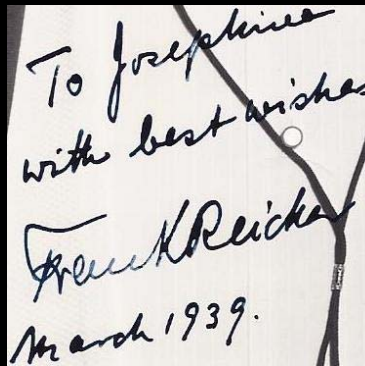 To Josephine
with best wishes
Frank Reicher
March 1939.